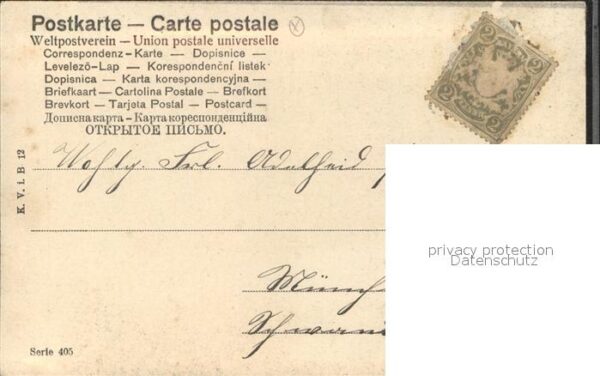 Postkarte — Carte postale
Weltpostverein — Union postale universelle
Correspondenz-Karte — Dopisnice —
Levelező-Lap — Korespondenční listek
Dopisnica — Karta korespondencyjna —
Briefkaart — Cartolina Postale — Brefkort
Brevkort — Tarjeta Postal — Postcard —
Дописна карта — Карта кореспонденційна
ОТКРЫТОЕ ПИСЬМО.
2 2
2 2
K. V. i. B 12
Wohlg. Frl. Adelheid
privacy protection
Datenschutz
Münch
Schwan
Serie 405